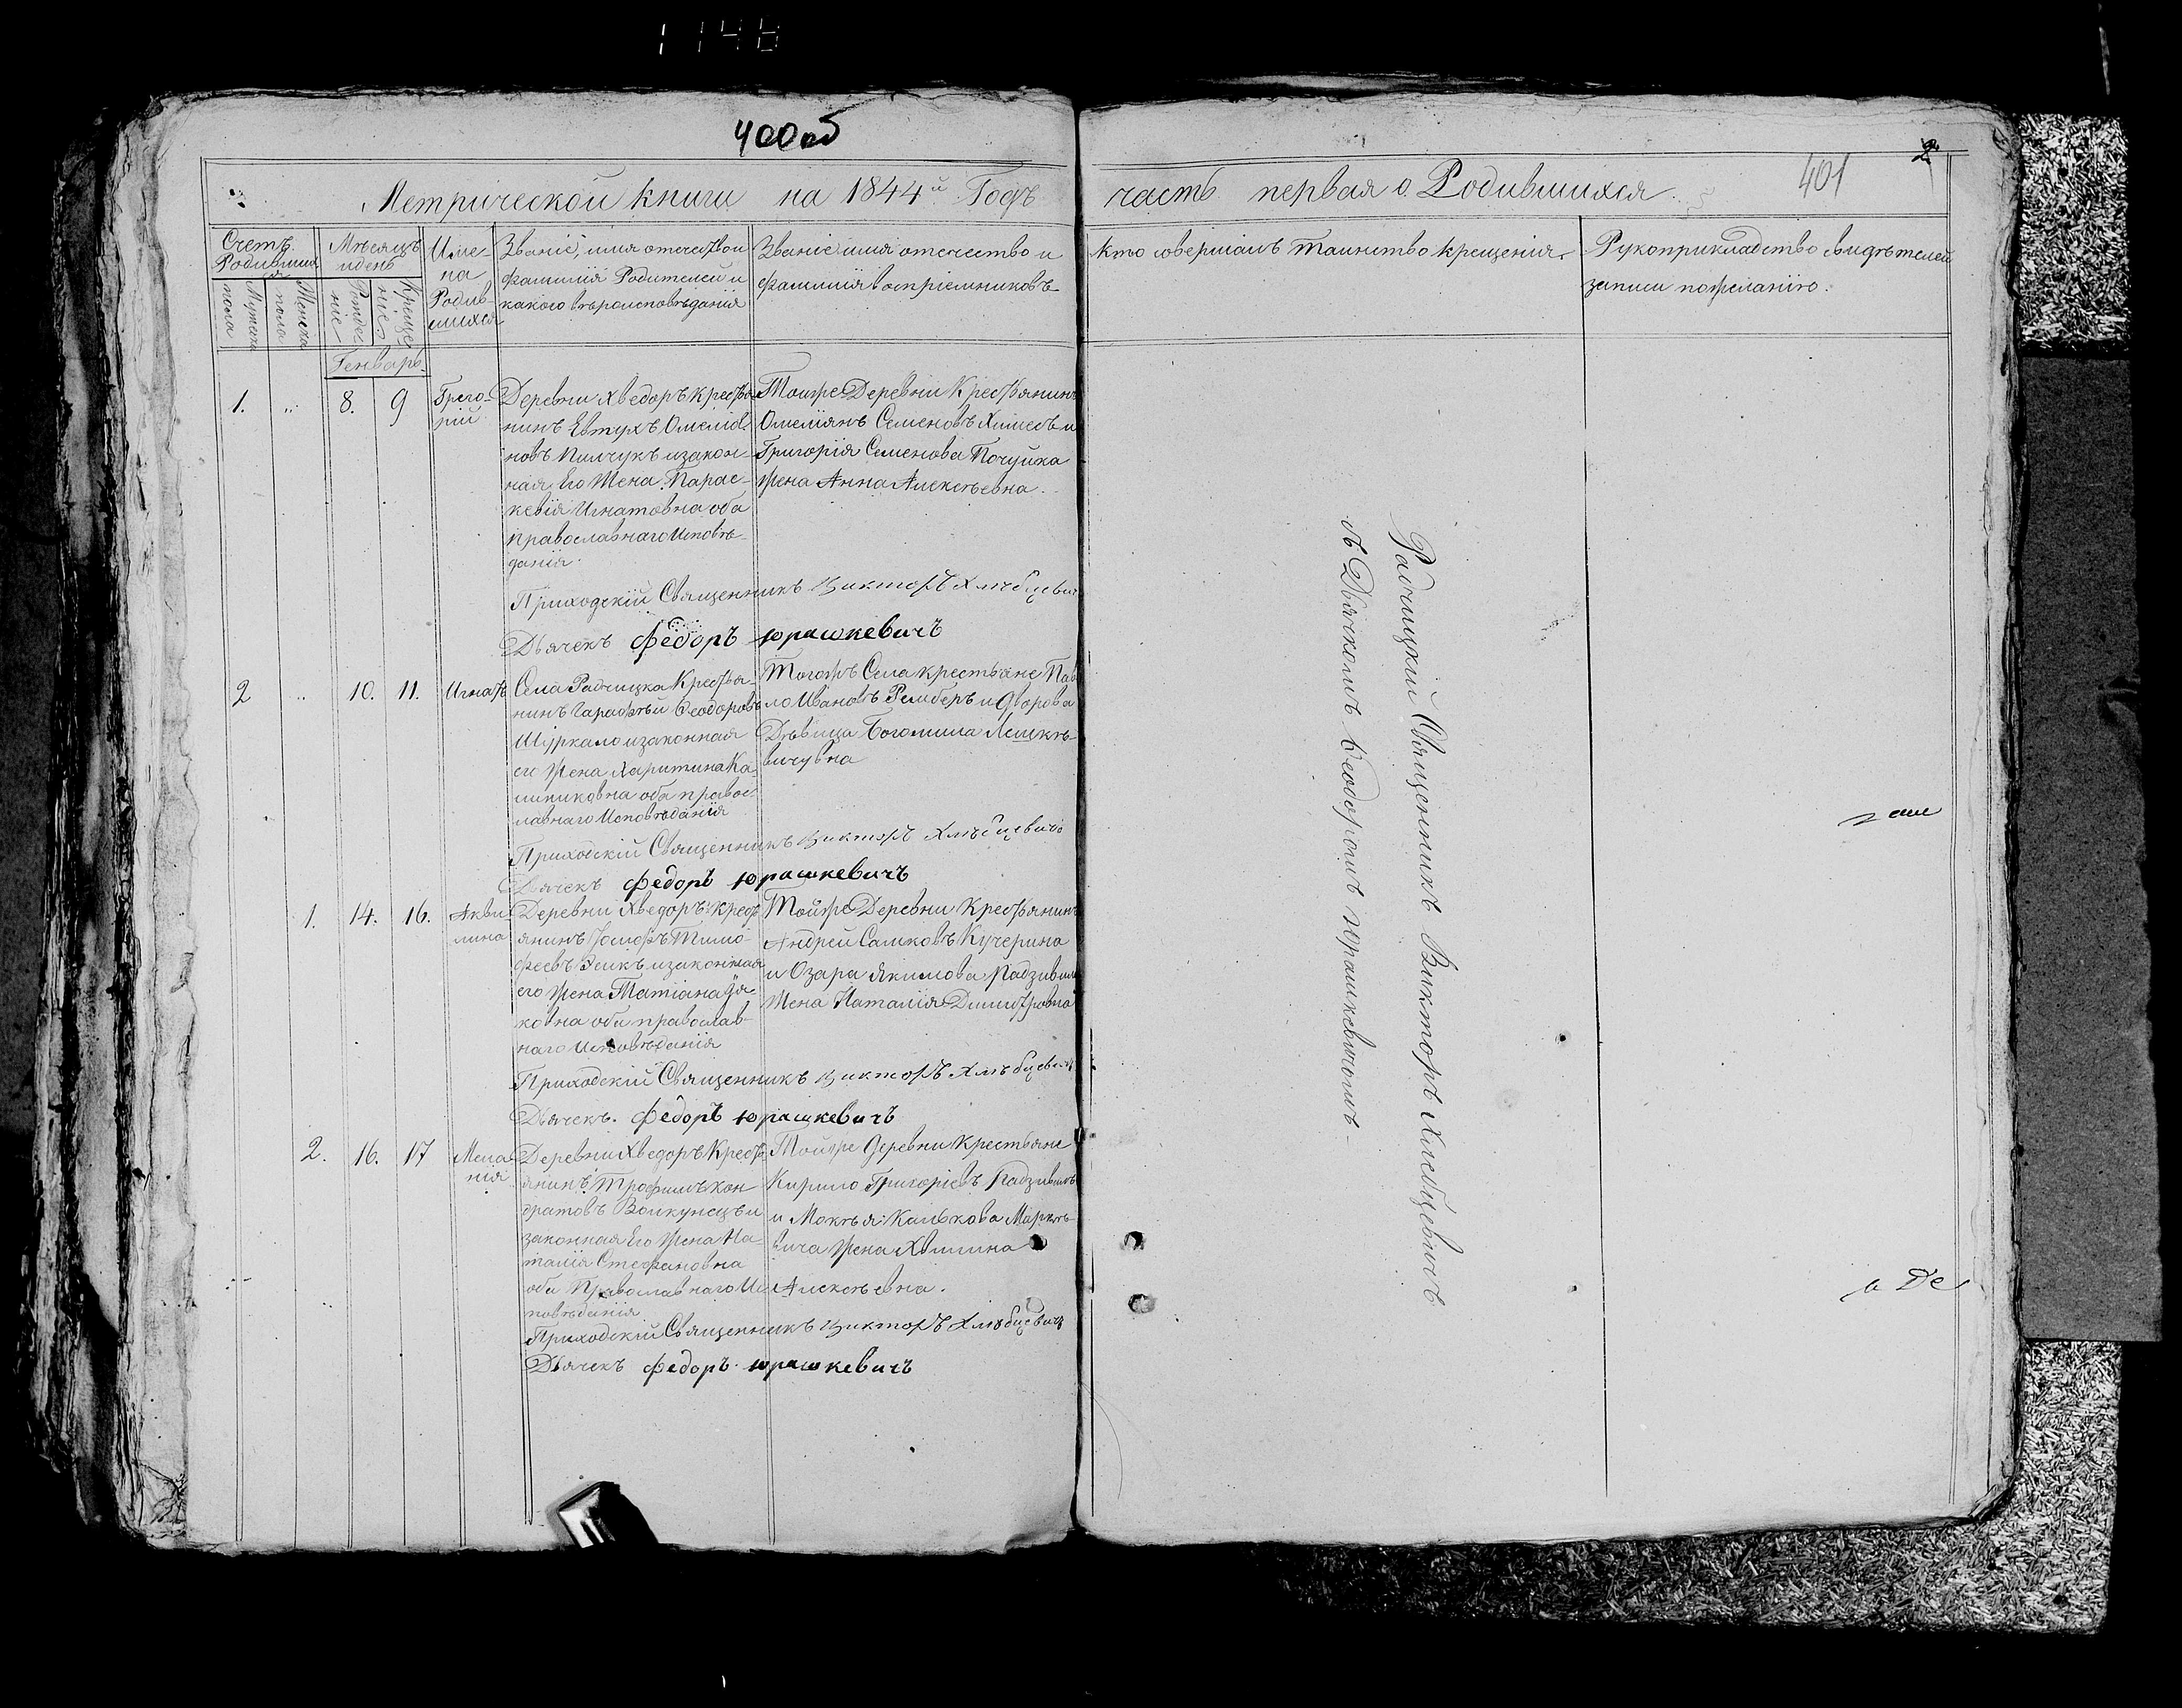 1146
400 об
Метрической книги на 1844й Годъ часть первая о Родившихся
401
2
Счетъ Родившихся
Мужеска пола
Женска пола
Мѣсяцъ и день
Рожденіе
Крещеніе
Имена Родившихся
Званіе, имя отечество и
фамилія Родителей и
какого вѣроисповѣданія
Званіе имя отечество и
фамилія воспріемниковъ
Кто совершалъ таинство крещенія.
Рукоприкладство свидѣтелей
записи по желанію.
Генварь
1. „ 8. 9
Грего-
рій
Деревни Хведоръ крестья-
нинъ Евтухъ Омелія-
новъ Пилчукъ и закон-
ная Его Жена Парас-
кевія Игнатовна оба
православнаго Исповѣ-
данія.
Тойже Деревни Крестьянинъ
Омеліянъ Семеновъ и
Григорія Семенова Почуйка
жена Анна Алексѣевна.
Приходскій Священникъ Викторъ Хлѣбцевичъ
Дьячекъ Федоръ Юрашкевичъ
2 „ 10. 11. Игнатъ
Села Радчицка Крестья-
нинъ Гарафѣй Феодоровъ
Шуркало и законная
его жена Харитина Ка-
линиковна оба правос-
лавнаго Исповѣданія
Тогожъ Села крестьяне Пав-
ло Ивановъ Ремберъ и дворова
Дѣвица Богомила Лещкѣ-
вичувна
Приходскій Священникъ Викторъ Хлѣбцевичъ
Дьячекъ Федоръ Юрашкевичъ
1. 14. 16.
Акви-
лина
Деревни Хведоръ Крест-
янинъ Іосифъ Тимо-
феевъ и законная
его жена Татіана
ковна оба православ-
наго Исповѣданія
Тойже Деревни Крестьянинъ
Андрей Сашковъ Кучерина
и Озара Якимова Радзивила
Жена Наталія Димитровна
Приходскій Священникъ Викторъ Хлѣбцевичъ
Дьячекъ. Федоръ Юрашкевичъ
2. 16. 17
Мела-
нія
Деревни Хведоръ Крест-
янинъ Трофимъ Кон-
дратовъ Волкунецъ и
законная Его жена На-
талія Стефановна
оба Православнаго Ис-
повѣданія
Тойже деревни крестьяне
Кирило Григоріевъ Радзивилъ
и Мокѣя Калькова Маркѣ-
вича жена Хвимина
Алексѣевна.
Приходскій Священникъ Викторъ Хлѣбцевичъ
Дьячекъ Федоръ Юрашкевичъ
Радчицкій Священникъ Викторъ Хлебцевичъ
съ Дьячкомъ Феодоромъ Юрашкевичомъ